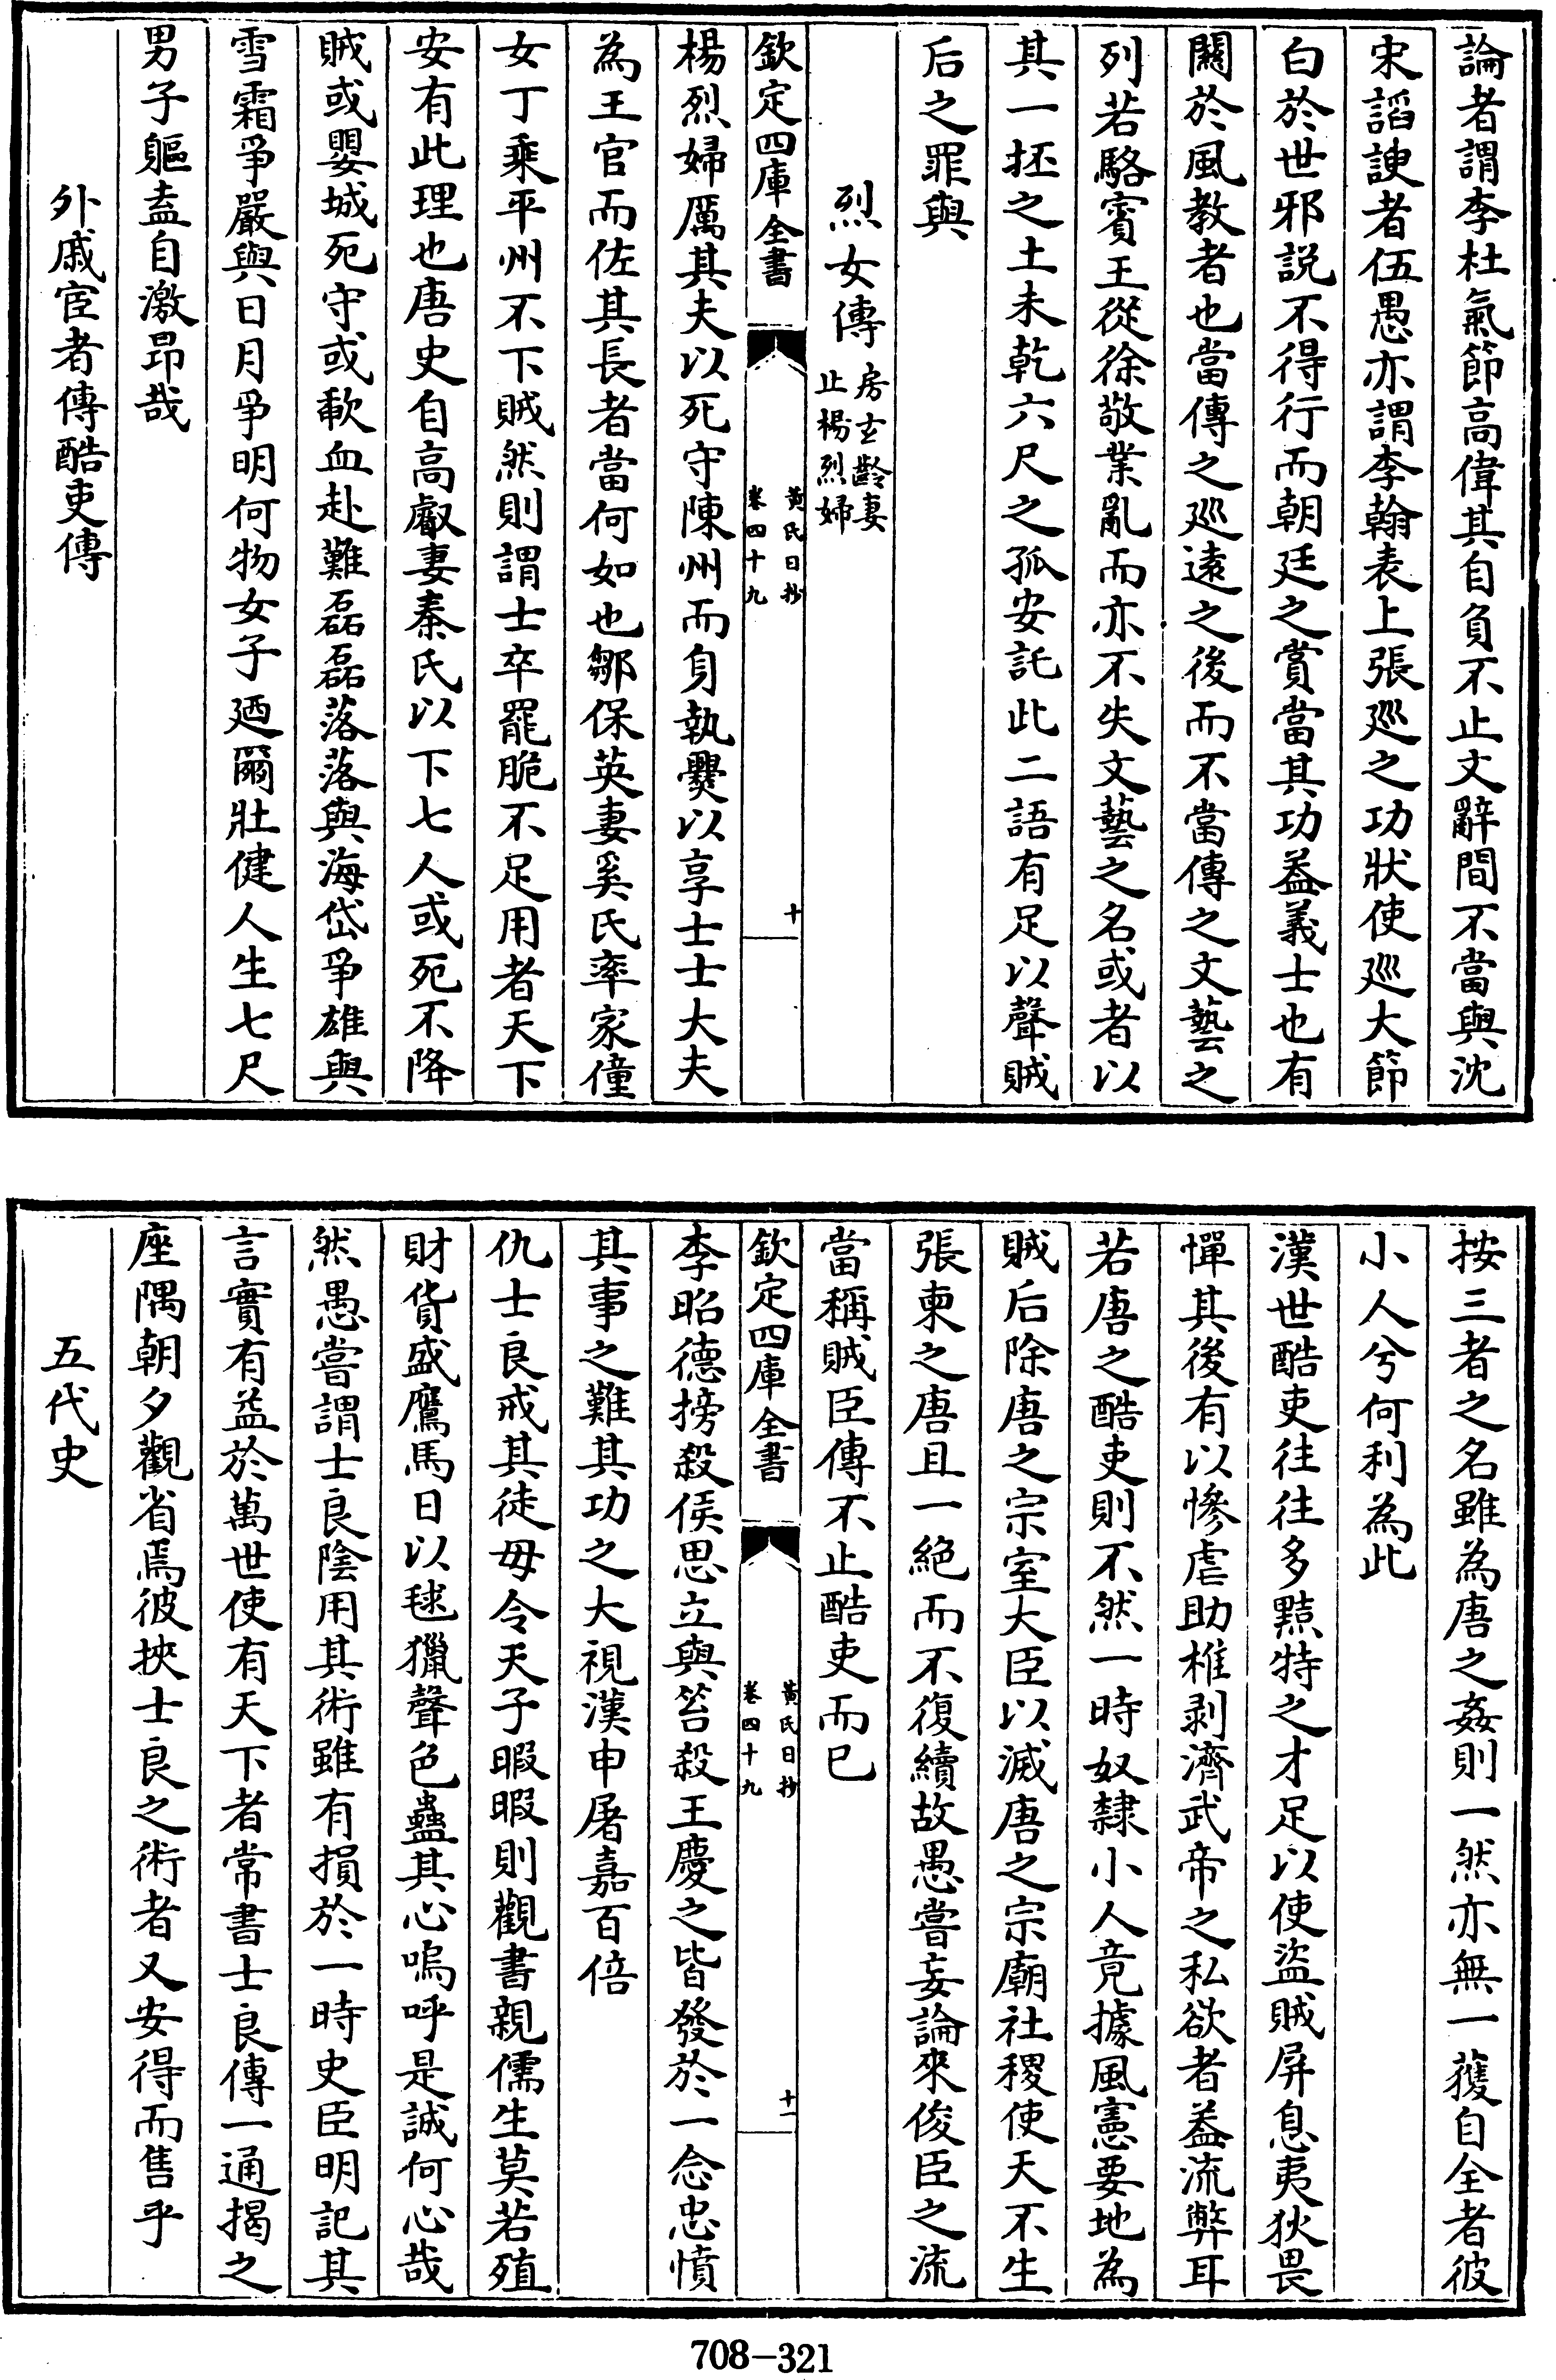 論者謂李杜氣節高偉其自負不止文辭間不當與沈
宋謟諛者伍愚亦謂李翰表上張巡之功狀使巡大節
白於世邪説不得行而朝廷之賞當其功葢義士也有
關於風教者也當傳之巡逺之後而不當傳之文藝之
列若駱賓王從徐敬業亂而亦不失文藝之名或者以
其一抔之土未乾六尺之孤安託此二語有足以聲賊
后之罪與
烈女傳房玄齡妻
止楊烈婦
欽定四庫全書
黄氏日抄
卷四十九
十
楊烈婦厲其夫以死守陳州而身執爨以享士士大夫
為王官而佐其長者當何如也鄒保英妻奚氏率家僮
女丁乘平州不下賊然則謂士卒罷脆不足用者天下
安有此理也唐史自高叡妻秦氏以下七人或死不降
賊或嬰城死守或歃血赴難磊磊落落與海岱爭雄與
雪霜爭嚴與日月爭明何物女子廼爾壯健人生七尺
男子軀盍自激昂哉
外戚宦者傳酷吏傳
按三者之名雖為唐之姦則一然亦無一獲自全者彼
小人兮何利為此
漢世酷吏往往多㸃特之才足以使盜賊屏息夷狄畏
憚其後有以慘虐助椎剥濟武帝之私欲者葢流弊耳
若唐之酷吏則不然一時奴隸小人竟據風憲要地為
賊后除唐之宗室大臣以滅唐之宗廟社稷使天不生
張柬之唐且一絶而不復續故愚嘗妄論來俊臣之流
當稱賊臣傳不止酷吏而已
欽定四庫全書
黄氏日抄
卷四十九
十一
李昭德搒殺侯思立與笞殺王慶之皆發於一念忠憤
其事之難其功之大視漢申屠嘉百倍
仇士良戒其徒毋令天子暇暇則觀書親儒生莫若殖
財貨盛鷹馬日以毬獵聲色蠱其心嗚呼是誠何心哉
然愚嘗謂士良陰用其術雖有損於一時史臣明記其
言實有益於萬世使有天下者常書士良傳一通揭之
座隅朝夕觀省焉彼挾士良之術者又安得而售乎
五代史
708-321